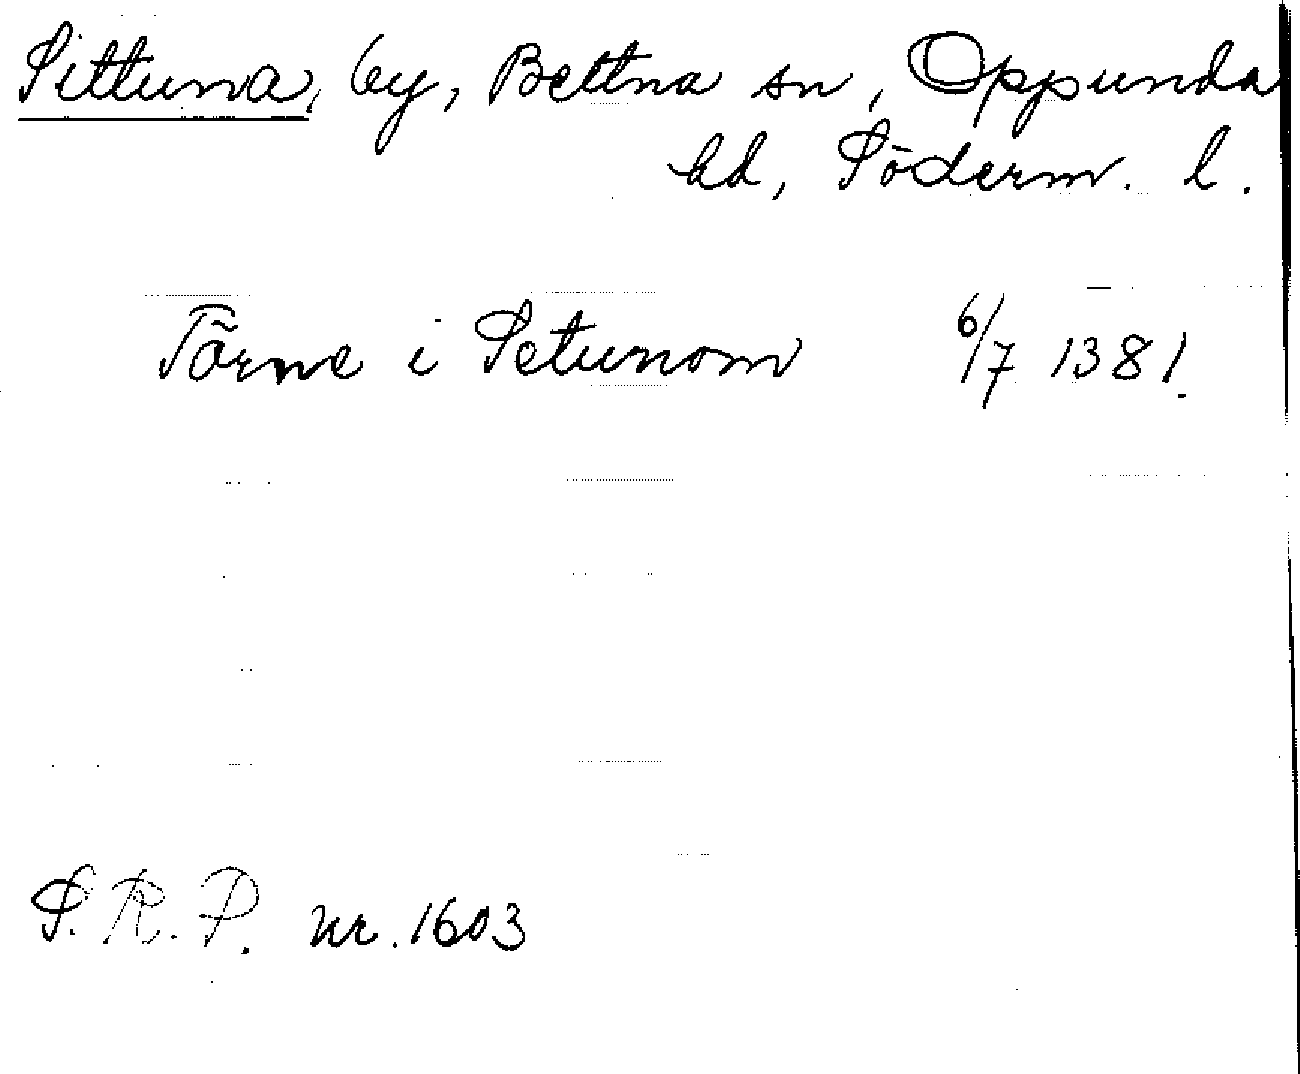 Sittuna, by, Bettna sn, Oppunda
hd, Söderm. l.
Törne i Setunom 6/7 1381.
S.R.P. nr. 1603